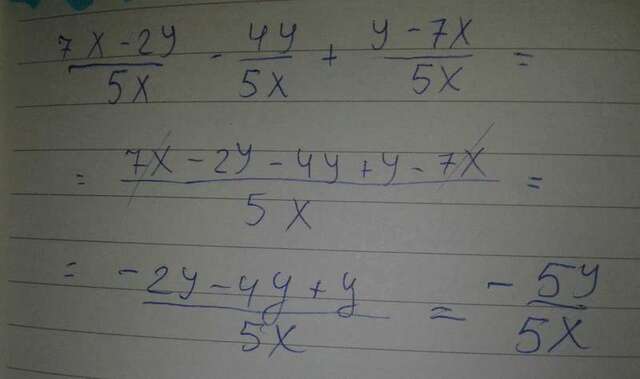 (7x - 2y)/5x - 4y/5x + (y - 7x)/5x =
= (7x - 2y - 4y + y - 7x)/5x =
= (-2y - 4y + y)/5x = - 5y/5x